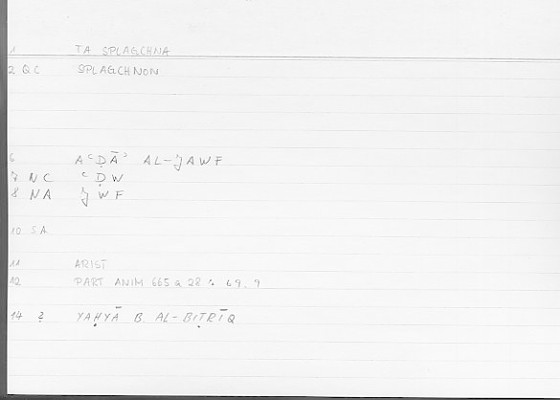 1 TA SPLAGCHNA
2 QC SPLAGCHNON
6 AʿḌĀʾ AL-ǦAWF
7 NC ʿḌW
8 NA ǦWF
10 S.A.
11 ARIST
12 PART ANIM 665 a 28 69. 9
14 2 YAḤYĀ B AL-BIṬRĪQ